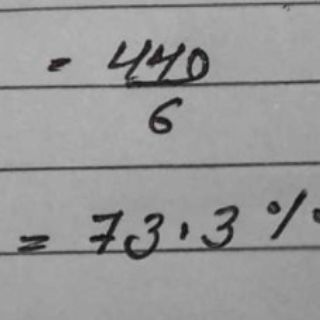 = 440
6
= 73.3%